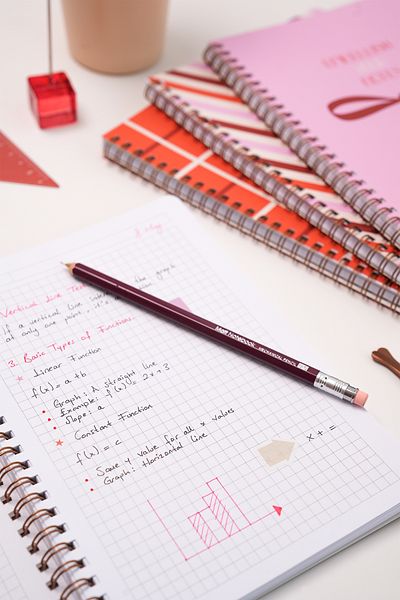 8 May
Vertical Line Test
If a vertical line the graph
at only one point, it's a
3. Basic Types of Functions
Linear Function
f(x) = a + b
Graph: A straight line
Example: f(x) = 2x + 3
Slope: a
Constant Function
f(x) = c
Same y value for all x values
Graph: Horizontal line
x + =
NOTEBOOK MECHANICAL PENCIL